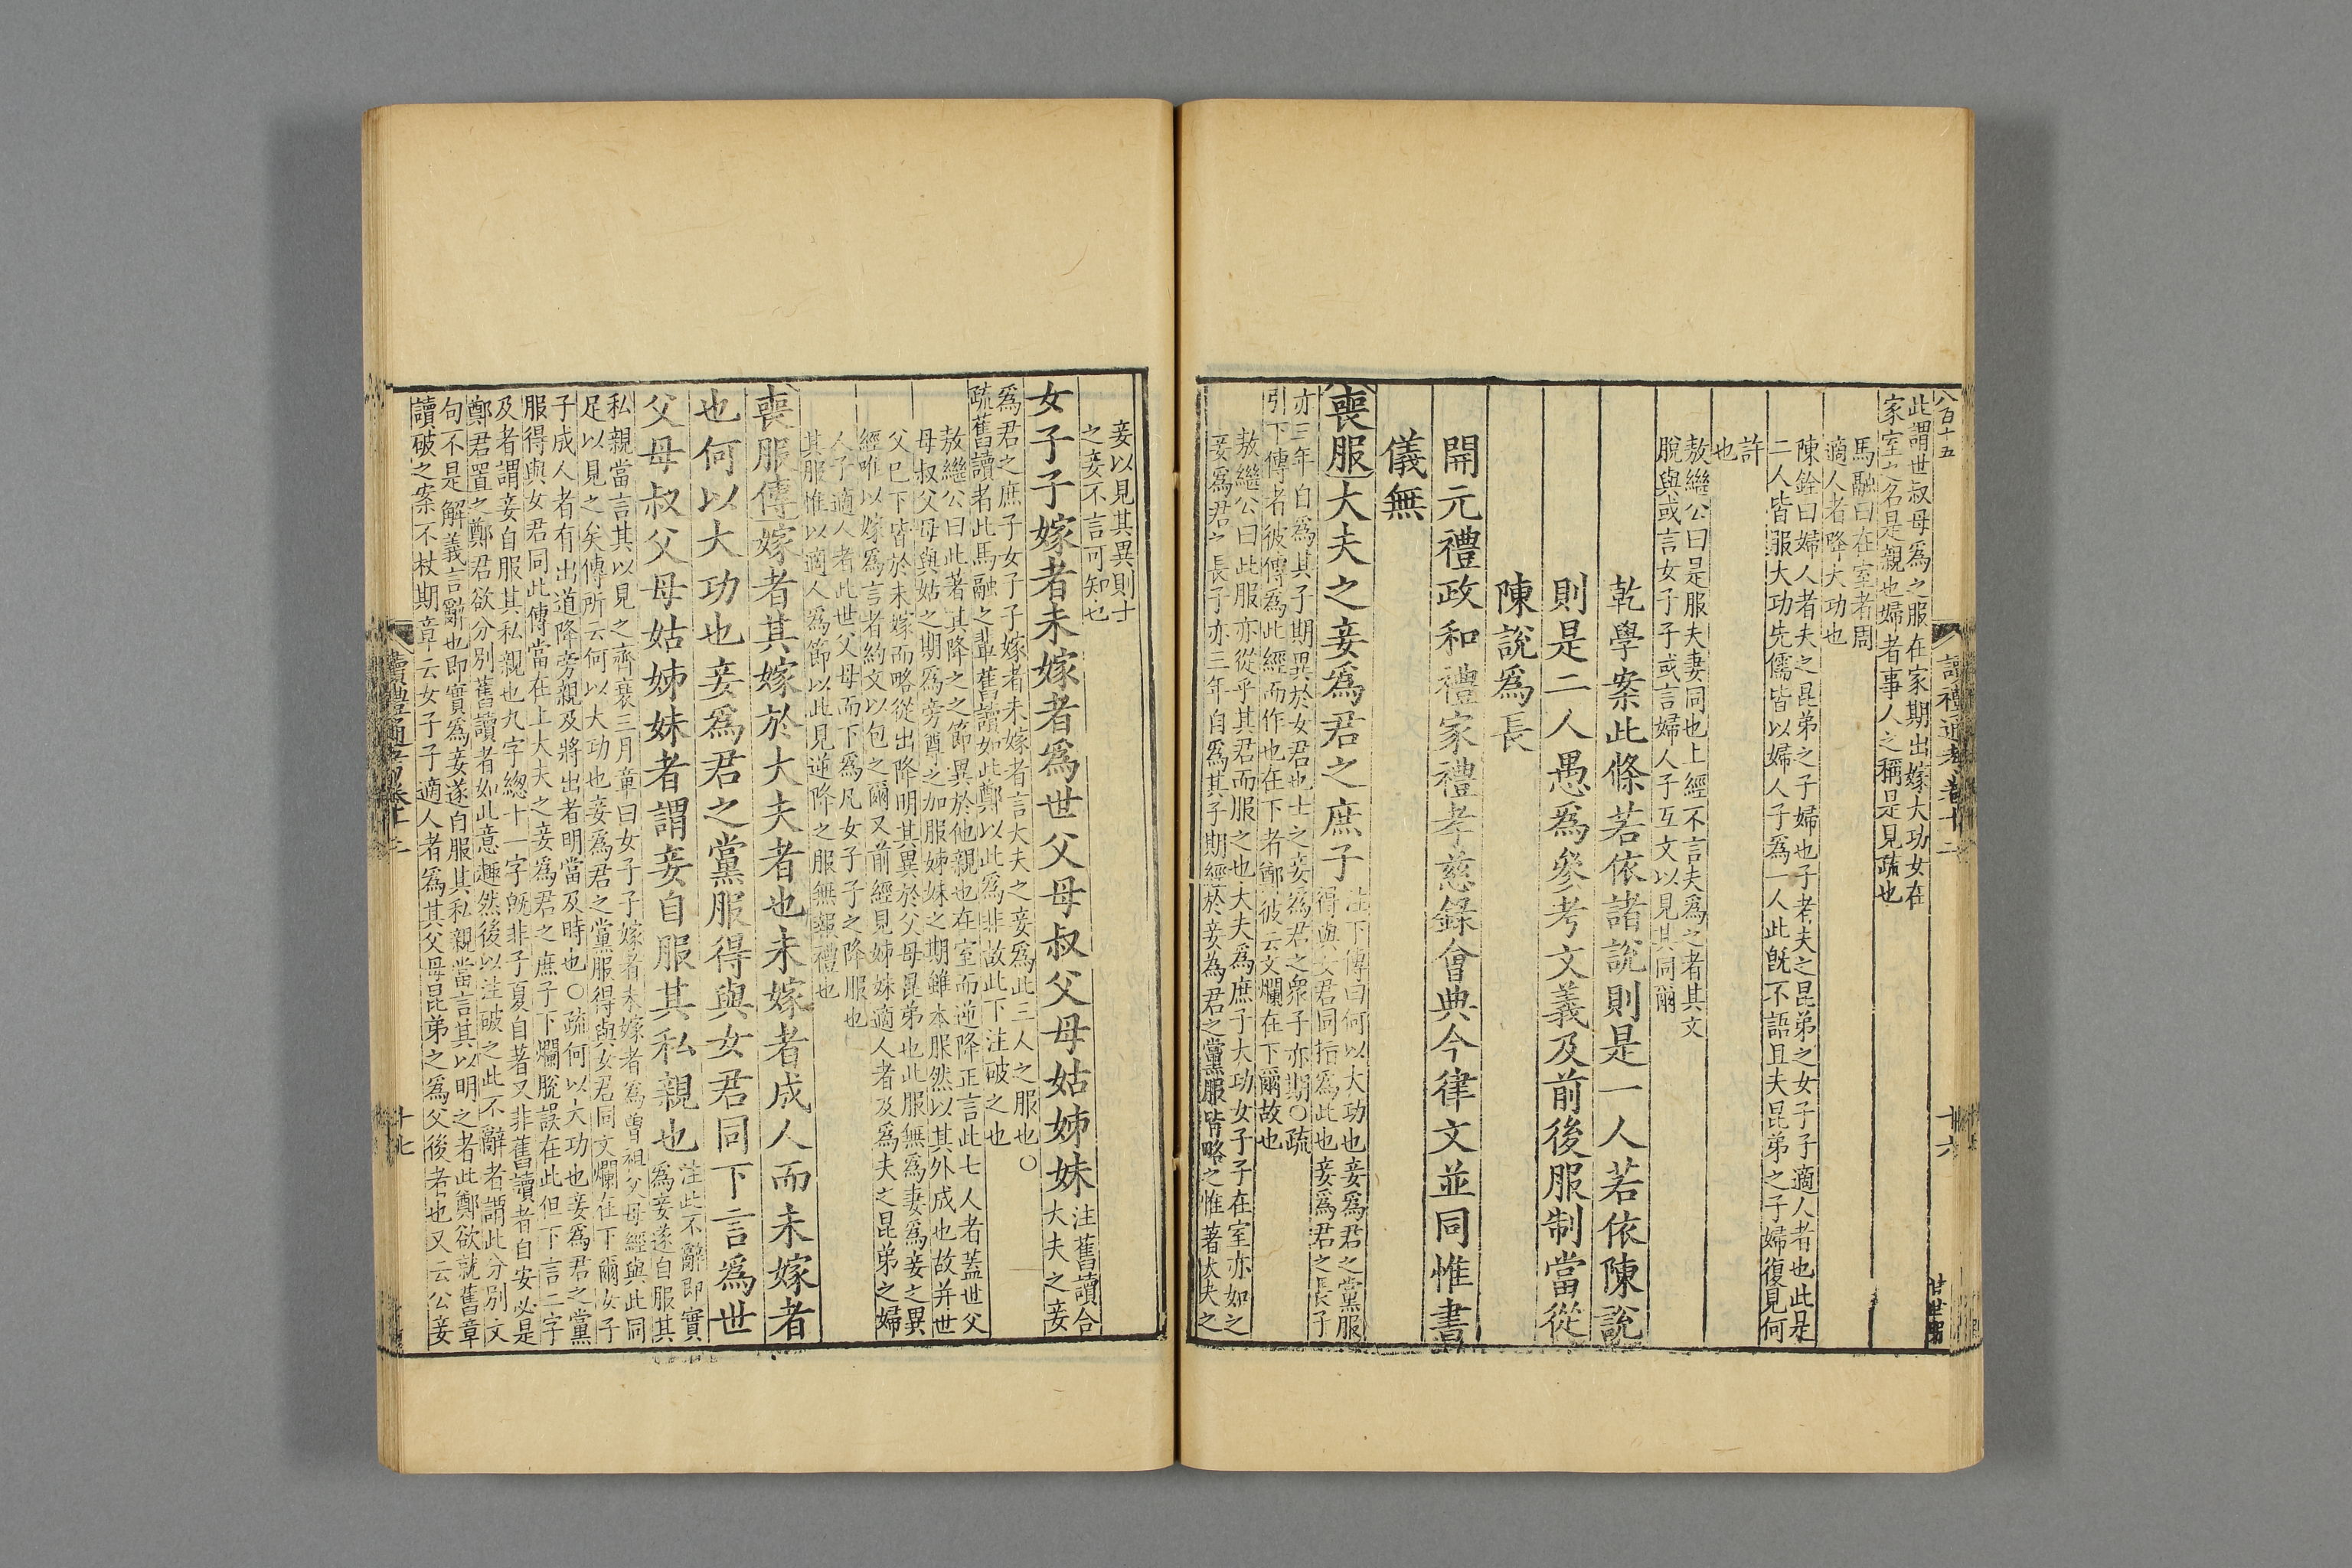 八百十五
讀禮通考卷十二
十六
此謂世叔母爲之服在家期出嫁大功女在
家室之名是親也婦者事人之稱是見疏也
馬融曰在室者周
適人者降大功也
陳銓曰婦人者夫之昆弟之子婦也子者夫之昆弟之女子子適人者也此是
二人皆服大功先儒皆以婦人子爲一人此旣不語且夫昆弟之子婦復見何
許
也
敖繼公曰是服夫妻同也上經不言夫爲之者其文
脫與或言女子子或言婦人子互文以見其同爾
乾學案此條若依諸說則是一人若依陳說
則是二人愚爲參考文義及前後服制當從
陳說爲長
開元禮政和禮家禮孝慈錄會典今律文並同惟書
儀無
喪服大夫之妾爲君之庶子
注下傳曰何以大功也妾爲君之黨服
得與女君同指爲此也妾爲君之長子
亦三年自爲其子期異於女君也士之妾爲君之衆子亦期○疏
引下傳者彼傳爲此經而作也在下者鄭彼云文爛在下爾故也
敖繼公曰此服亦從乎其君而服之也大夫爲庶子大功女子子在室亦如之
妾爲君之長子亦三年自爲其子期經於妾爲君之黨服皆略之惟著大夫之
妾以見其異則士
之妾不言可知也
女子子嫁者未嫁者爲世父母叔父母姑姊妹
注舊讀合
大夫之妾
爲君之庶子女子子嫁者未嫁者言大夫之妾爲此三人之服也○
疏舊讀者此馬融之輩舊讀如此鄭以此爲非故此下注破之也
敖繼公曰此著其降之之節異於他親也在室而逆降正言此七人者蓋世父
母叔父母與姑之期爲旁尊之加服姊妹之期雖本服然以其外成也故并世
父已下皆於未嫁而略從出降明其異於父母昆弟也此服無爲妻爲妾之異
經唯以嫁爲言者約文以包之爾又前經見姊妹適人者及爲夫之昆弟之婦
人子適人者此世父母而下爲凡女子子之降服也
其服惟以適人爲節以此見逆降之服無報禮也
喪服傳嫁者其嫁於大夫者也未嫁者成人而未嫁者
也何以大功也妾爲君之黨服得與女君同下言爲世
父母叔父母姑姊妹者謂妾自服其私親也
注此不辭即實
爲妾遂自服其
私親當言其以見之齊衰三月章曰女子子嫁者未嫁者爲曾祖父母經與此同
足以見之矣傳所云何以大功也妾爲君之黨服得與女君同文爛在下爾女子
子成人者有出道降旁親及將出者明當及時也○疏何以大功也妾爲君之黨
服得與女君同此傳當在上大夫之妾爲君之庶子下爛脫誤在此但下言二字
及者謂妾自服其私親也九字總十一字旣非子夏自著又非舊讀者自安必是
鄭君置之鄭君欲分別舊讀者如此意趣然後以注破之此不辭者謂此分別文
句不是解義言辭也即實爲妾遂自服其私親當言其以明之者此鄭欲就舊章
讀破之案不杖期章云女子子適人者爲其父母昆弟之爲父後者也又云公妾
讀禮通考卷十二
十七